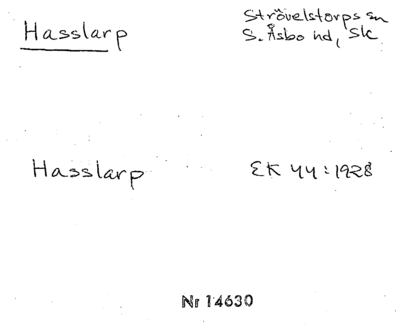 Hasslarp
Strövelstorps sn
S. Åsbo hd, Sk
Hasslarp
EK 44:1928
Nr 14630